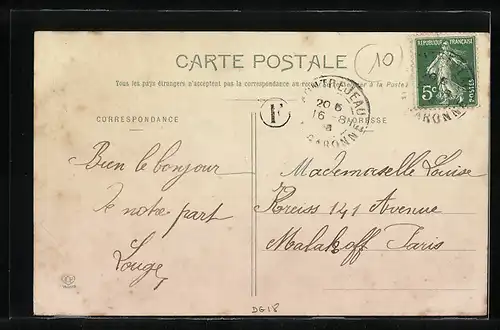 CARTE POSTALE
10
Tous les pays étrangers n'acceptent pas la correspondance au
à la Poste
REPUBLIQUE FRANÇAISE
5c
POSTES
CORRESPONDANCE
E
20
16 - 8
GARONN
ARONN
ADRESSE
Bien le bonjour
de notre part
Louge
Mademoiselle Louise
Kreiss 141 Avenue
Malakoff Paris
DG18